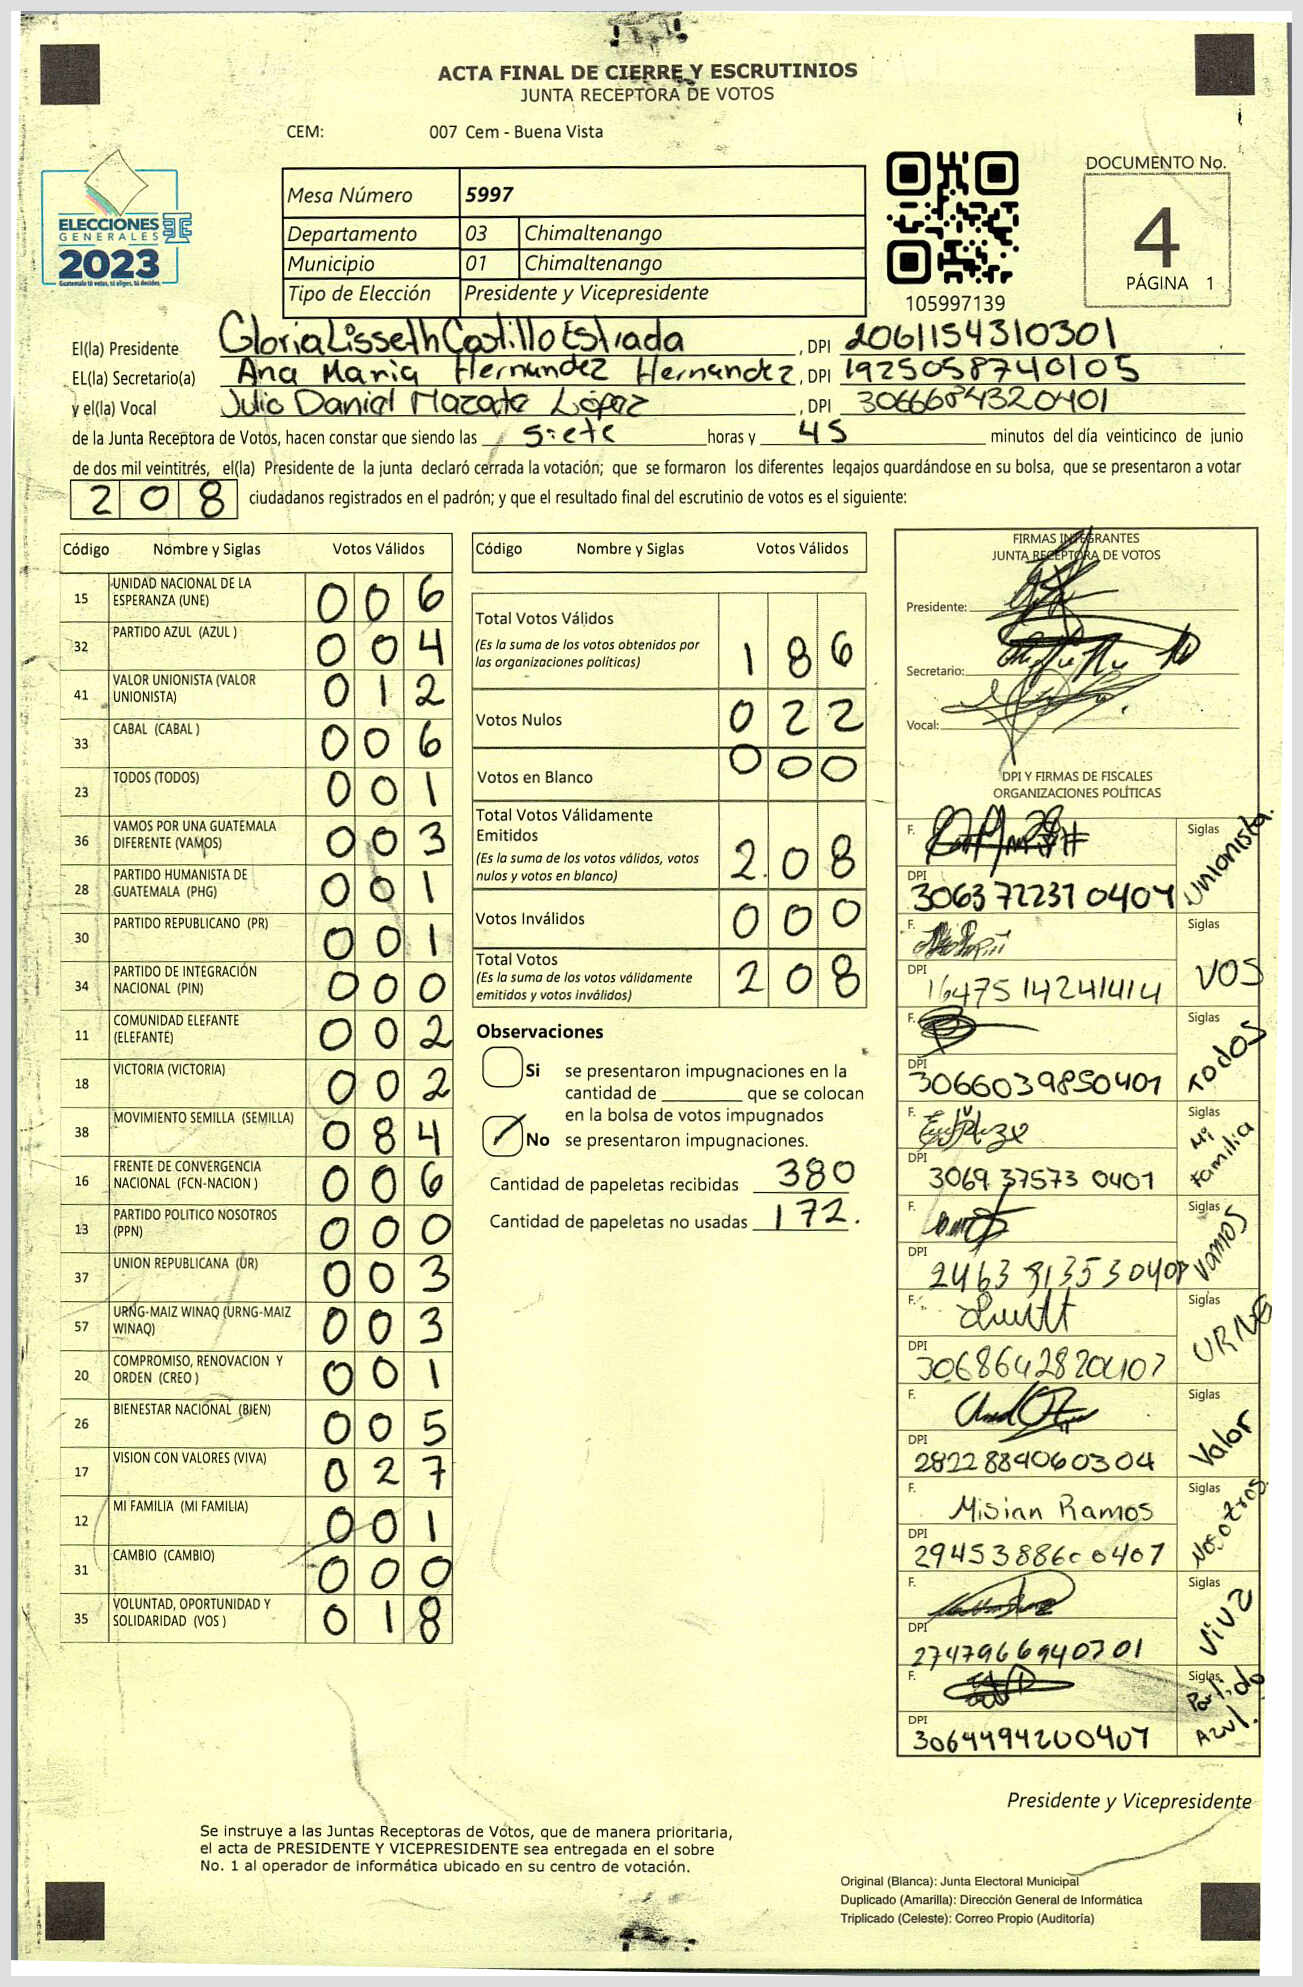 ACTA FINAL DE CIERRE Y ESCRUTINIOS
JUNTA RECEPTORA DE VOTOS
CEM: 007 Cem - Buena Vista
ELECCIONES
GENERALES
2023
Guatemala tú votas, tú eliges, tú decides.
Mesa Número 5997
Departamento 03 Chimaltenango
Municipio 01 Chimaltenango
Tipo de Elección Presidente y Vicepresidente
105997139
DOCUMENTO No.
4
PÁGINA 1
El(la) Presidente Gloria Lisseth Castillo Estrada , DPI 2061154310301
EL(la) Secretario(a) Ana Maria Hernandez Hernandez , DPI 1925058740105
y el(la) Vocal Julio Daniel Mazate López , DPI 3066684320401
de la Junta Receptora de Votos, hacen constar que siendo las siete horas y 45 minutos del día veinticinco de junio
de dos mil veintitrés, el(la) Presidente de la junta declaró cerrada la votación; que se formaron los diferentes legajos guardándose en su bolsa, que se presentaron a votar
208 ciudadanos registrados en el padrón; y que el resultado final del escrutinio de votos es el siguiente:
Código Nombre y Siglas Votos Válidos
15 UNIDAD NACIONAL DE LA ESPERANZA (UNE) 006
32 PARTIDO AZUL (AZUL ) 004
41 VALOR UNIONISTA (VALOR UNIONISTA) 012
33 CABAL (CABAL ) 006
23 TODOS (TODOS) 001
36 VAMOS POR UNA GUATEMALA DIFERENTE (VAMOS) 003
28 PARTIDO HUMANISTA DE GUATEMALA (PHG) 001
30 PARTIDO REPUBLICANO (PR) 001
34 PARTIDO DE INTEGRACIÓN NACIONAL (PIN) 000
11 COMUNIDAD ELEFANTE (ELEFANTE) 002
18 VICTORIA (VICTORIA) 002
38 MOVIMIENTO SEMILLA (SEMILLA) 084
16 FRENTE DE CONVERGENCIA NACIONAL (FCN-NACION ) 006
13 PARTIDO POLITICO NOSOTROS (PPN) 000
37 UNION REPUBLICANA (UR) 003
57 URNG-MAIZ WINAQ (URNG-MAIZ WINAQ) 003
20 COMPROMISO, RENOVACION Y ORDEN (CREO ) 001
26 BIENESTAR NACIONAL (BIEN) 005
17 VISION CON VALORES (VIVA) 027
12 MI FAMILIA (MI FAMILIA) 001
31 CAMBIO (CAMBIO) 000
35 VOLUNTAD, OPORTUNIDAD Y SOLIDARIDAD (VOS ) 018
Código Nombre y Siglas Votos Válidos
Total Votos Válidos
(Es la suma de los votos obtenidos por las organizaciones políticas) 186
Votos Nulos 022
Votos en Blanco 000
Total Votos Válidamente Emitidos
(Es la suma de los votos válidos, votos nulos y votos en blanco) 208
Votos Inválidos 000
Total Votos
(Es la suma de los votos válidamente emitidos y votos inválidos) 208
Observaciones
Si se presentaron impugnaciones en la
cantidad de ________ que se colocan
en la bolsa de votos impugnados
No se presentaron impugnaciones.
Cantidad de papeletas recibidas 380
Cantidad de papeletas no usadas 172.
FIRMAS INTEGRANTES
JUNTA RECEPTORA DE VOTOS
Presidente:
Secretario:
Vocal:
DPI Y FIRMAS DE FISCALES
ORGANIZACIONES POLÍTICAS
F. Siglas Unionista.
DPI 3063722370407
F. Siglas VOS
DPI 1647514241414
F. Siglas Todos
DPI 3066039850401
F. Siglas Mi Familia
DPI 3069375730401
F. Siglas Vamos
DPI
F. Siglas URNG
DPI
F. Siglas Valor
DPI 2822889060304
F. Misian Ramos Siglas Nosotros.
DPI 2945388600407
F. Siglas Viva
DPI 2747966940701
F. Siglas Partido Azul.
DPI 3064494200407
Presidente y Vicepresidente
Se instruye a las Juntas Receptoras de Votos, que de manera prioritaria,
el acta de PRESIDENTE Y VICEPRESIDENTE sea entregada en el sobre
No. 1 al operador de informática ubicado en su centro de votación.
Original (Blanca): Junta Electoral Municipal
Duplicado (Amarilla): Dirección General de Informática
Triplicado (Celeste): Correo Propio (Auditoría)